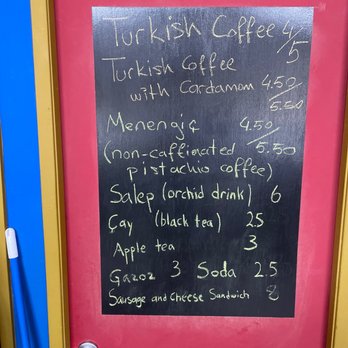 Turkish Coffee 4/5
Turkish Coffee
with Cardamom 4.50/5.50
Menengiç 4.50/5.50
(non-caffinated
pistachio coffee)
Salep (orchid drink) 6
Çay (black tea) 2.5
Apple tea 3
Gazoz 3 Soda 2.5
Sausage and Cheese Sandwich